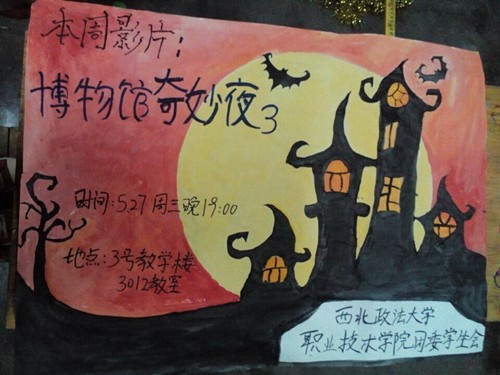 本周影片:
博物馆奇妙夜3
时间:5.27 周三晚19:00
地点:3号教学楼
3012教室
西北政法大学
职业技术学院团委学生会